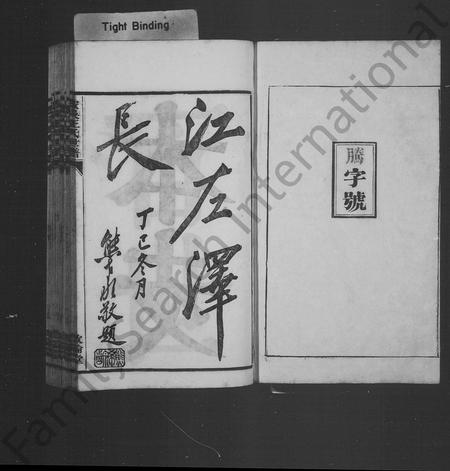 Tight Binding
江左澤
長
丁巳冬月
敬題
騰
字
號
FamilySearch International